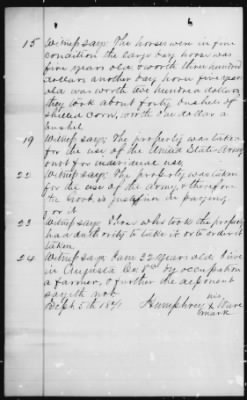 15 Witness says; The horses were in fine
condition the large bay horse was
five years old & worth three hundred
dollars another bay horse five years
old was worth two hundred dollars,
they took about forty bushels of
shelled corn, worth one dollar a
bushel.
19 Witness says; The property was taken
for the use of the United States Army
not for individual use.
22 Witness says; The property was taken
for the use of the Army, therefore
the Govt. is just in paying
for it.
23 Witness says: Those who took the property
had authority to take it or to order it
taken.
24 Witness says: I am 32 years old I live
in Augusta Co. Va by occupation
a farmer, & further the deponent
sayeth not.
Sept. 5th 1871 Humphrey his x mark Ware